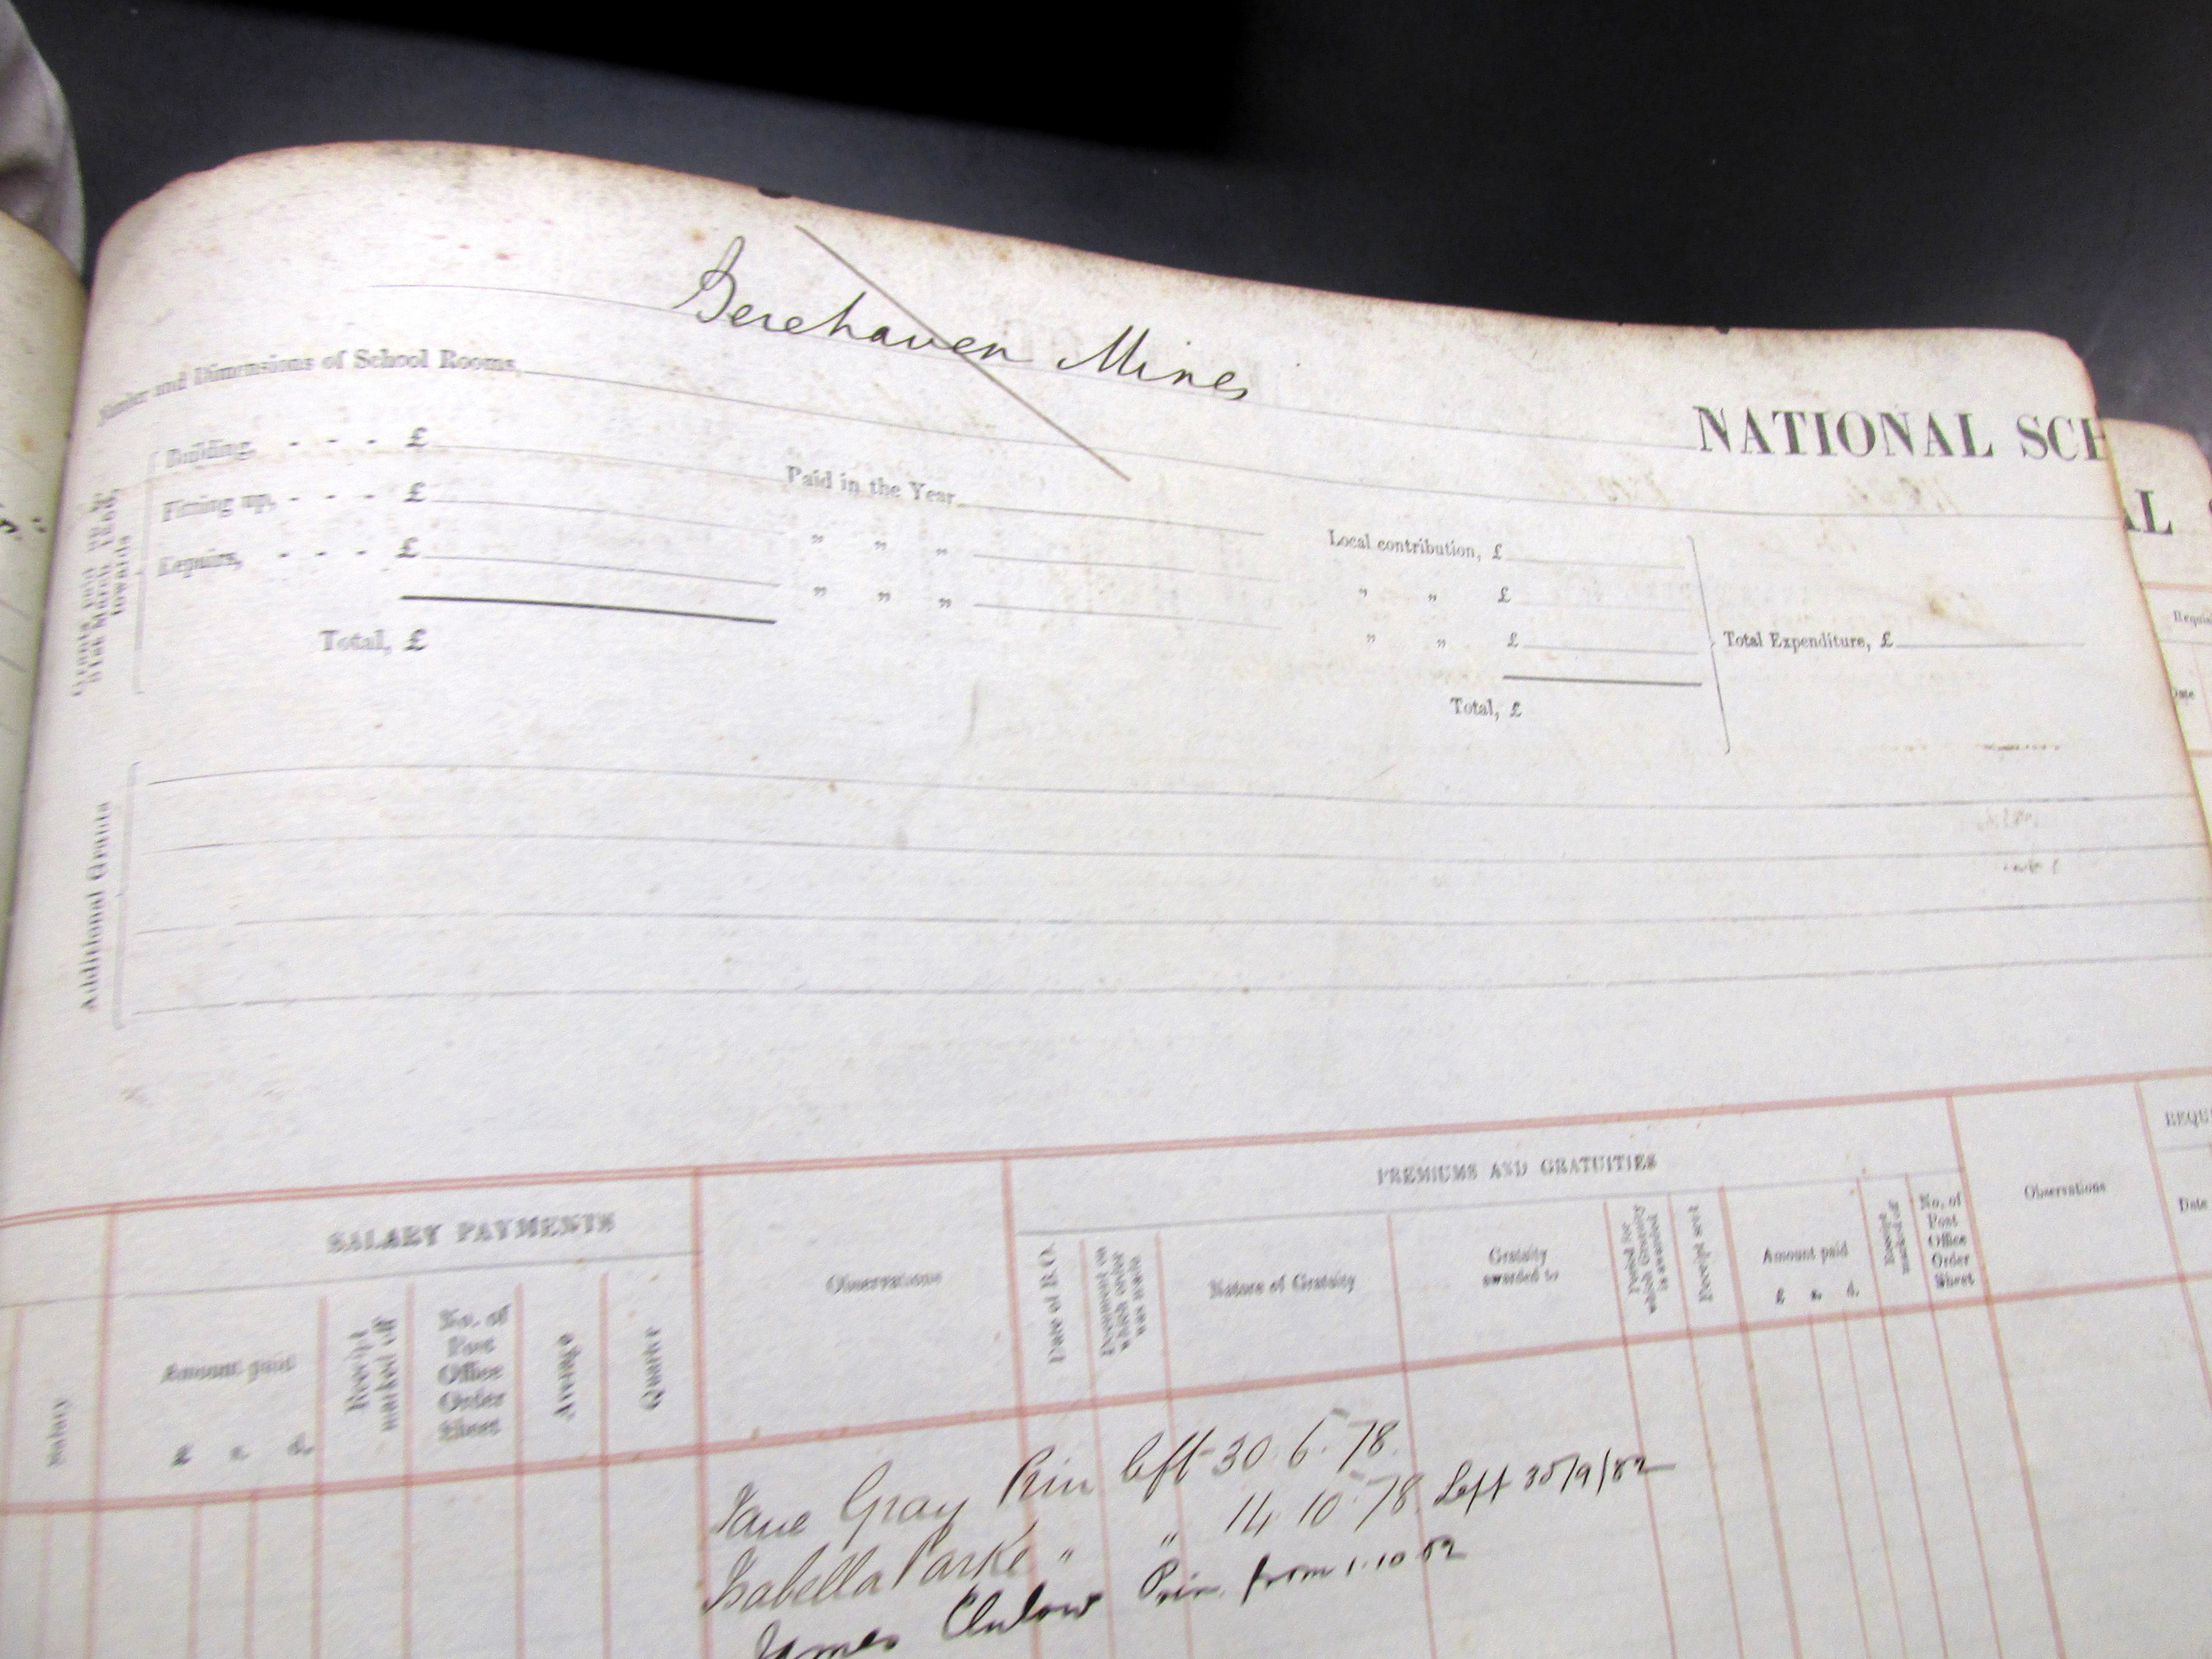 Berehaven Mines
NATIONAL SCH
AL
Number and Dimensions of School Rooms,
Grants paid up to 31st March, 1860, towards
Building, - - - £
Paid in the Year
Local contribution, £
Fitting up, - - - £
" " "
" " £
Repairs, - - - £
" " "
" " £
Total, £
Total, £
Total Expenditure, £
Additional Grants
SALARY PAYMENTS
Observations
PREMIUMS AND GRATUITIES
Observations
REQU
Date
Salary
Amount paid
£ s. d.
Receipt marked off
No. of Post Office Order Sheet
Average
Quarter
Date of B.O.
Document on which order was made
Nature of Gratuity
Gratuity awarded to
Period for which Gratuity is awarded
Receipt sent
Amount paid
£ s. d.
Receipt marked off
No. of Post Office Order Sheet
Jane Gray Prin left 30. 6. 78
Isabella Parke " " 14 10 78 Left 30/9/82
James Clulow Prin. from 1.10 82